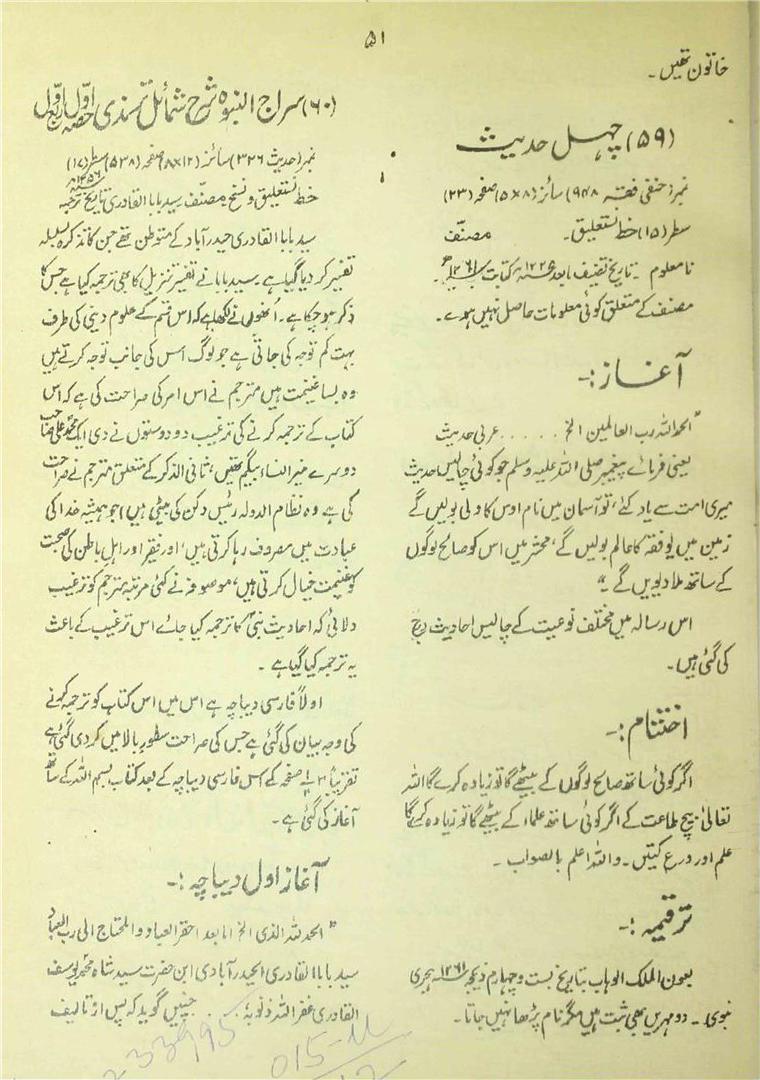 ۵۱
خاتون تھیں۔
(۵۹) چہل حدیث
نمبر (حنفی فقہ ۹۴۸) سائز (۸×۵) صفحہ (۲۳)
سطر (۱۵) خط نستعلیق۔ مصنف
نامعلوم۔ تاریخ تصنیف مابعد ۱۲۲۵ھ کتابت ۱۲۶۱ھ۔
مصنف کے متعلق کوئی معلومات حاصل نہیں ہوے۔
آغاز:-
"الحمد للہ رب العالمین الخ ...... عربی حدیث
یعنی فرمائے پیغمبر صلی اللہ علیہ وسلم جو کوئی چالیس حدیث
میری امت سے یاد کئے، تو آسمان میں نام اوس کا ولی بولیں گے
زمین میں یو فقہ کا عالم بولیں گے، محشر میں اس کو صالح لوگوں
کے ساتھ ملا دیویں گے۔"
اس رسالہ میں مختلف نوعیت کے چالیس احادیث درج
کی گئی ہیں۔
اختتام:-
اگر کوئی ساتھ صالح لوگوں کے بیٹھے گا تو زیادہ کرے گا اللہ
تعالیٰ بیچ طاعت کے اگر کوئی ساتھ علماء کے بیٹھے گا تو زیادہ کہے گا
علم اور درع کیتں۔ واللہ اعلم بالصواب۔
ترقیمہ:-
بعون الملک الوہاب بتاریخ بست و چہارم ذیحجہ ۱۲۶۱ ہجری
نبوی۔ دو مہریں بھی ثبت ہیں مگر نام پڑھا نہیں جاتا۔
(۶۰) سراج النبوہ شرح شمائل ترمذی حصہ اوّل ربع اوّل
نمبر (حدیث ۳۲۶) سائز (۱۲×۸) صفحہ (۵۳۸) سطر (۱۷)
خط نستعلیق و نسخ مصنّف سید بابا القادری تاریخ ترجمہ ۱۲۵۶ھ
سید بابا القادری حیدرآباد کے متوطن تھے جن کا تذکرہ بسلسلہ
تفسیر کر دیا گیا ہے۔ سید بابا نے تفسیر تنزیل کا بھی ترجمہ کیا ہے جس کا
ذکر ہو چکا ہے۔ اُنھوں نے لکھا ہے کہ اس قسم کے علوم دینی کی طرف
بہت کم توجہ کی جاتی ہے جو لوگ اس کی جانب توجہ کرتے ہیں
وہ بسا غنیمت ہیں مترجم نے اس امر کی صراحت کی ہے کہ اس
کتاب کے ترجمہ کرنے کی ترغیب دو دوستوں نے دی ایک محمد علی صاحب
دوسرے منیر النساء بیگم تھیں، ثانی الذکر کے متعلق مترجم نے صراحت
کی ہے وہ نظام الدولہ رئیس دکن کی بیٹی ہیں) جو ہمیشہ خدا کی
عبادت میں مصروف رہا کرتی ہیں، اور فقیر اور اہل باطن کی صحبت
کو غنیمت خیال کرتی ہیں، موصوفہ نے کئی مرتبہ مترجم کو ترغیب
دلائی کہ احادیث نبیؐ کا ترجمہ کیا جائے اس ترغیب کے باعث
یہ ترجمہ کیا گیا ہے۔
اولاً فارسی دیباچہ ہے اس میں اس کتاب کو ترجمہ کرنے
کی وجہ بیان کی گئی ہے جس کی صراحت سطور بالا میں کر دی گئی ہے
تقریباً صفحہ کے اس فارسی دیباچہ کے بعد کتاب بسم اللہ کے ساتھ
آغاز کی گئی ہے۔
آغاز اول دیباچہ:-
"الحمد للہ الذی الخ اما بعد احقر العباد والمحتاج الی رب العباد
سید بابا القادری الحیدرآبادی ابن حضرت سید شاہ محمد یوسف
القادری غفر اللہ ذنوبہٗ .. چنیں گوید کہ پس از تالیف
233995
015-U
12